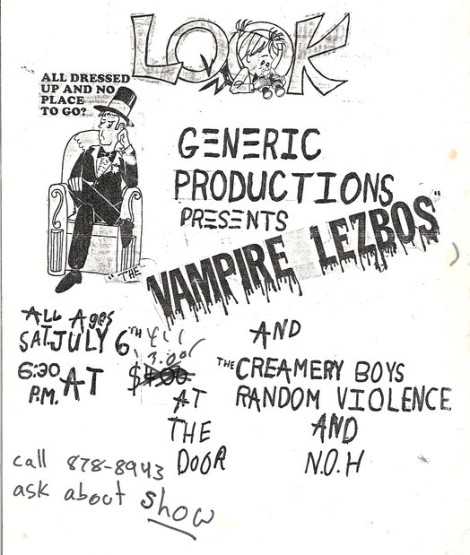 LOOK
ALL DRESSED
UP AND NO
PLACE
TO GO?
GENERIC
PRODUCTIONS
PRESENTS
"THE VAMPIRE LEZBOS"
ALL Ages
SAT. JULY 6TH
6:30 P.M. AT
3.00
$4.00
AT
THE
DOOR
AND
THE CREAMERY BOYS
RANDOM VIOLENCE
AND
N.O.H
call 878-8943
ask about show